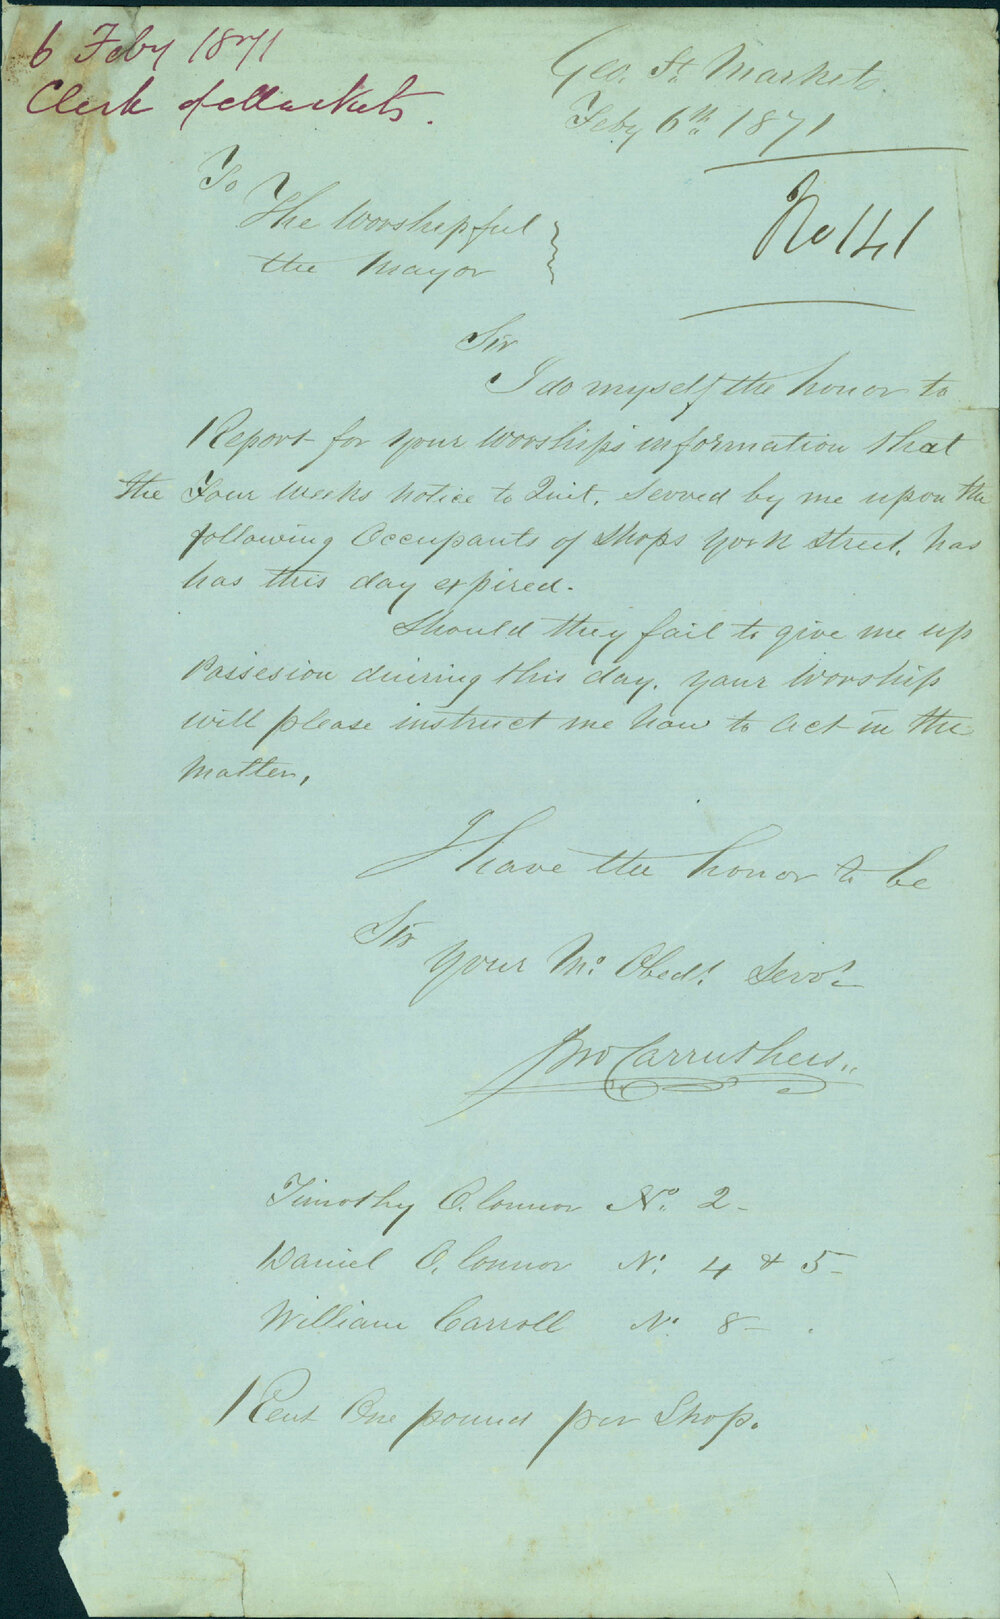 6 Feby 1871
Clerk of Markets.
Geo. St. Markets.
Feby 6th 1871
No 141
To
The Worshipful
the Mayor
Sir
I do myself the honor to
Report for your Worships information that
the Four Weeks notice to Quit. Served by me upon the
following Occupants of Shops York Street. has
has this day expired.
Should they fail to give me up
Possesion duiring this day. your Worship
will please instruct me how to Act in the
Matter,
I have the honor to be
Sir
your Mo. Obedt. Servt.
Jno Carruthers
Timothy O. Connor No. 2 -
Daniel O. Connor No. 4 & 5 -
William Carroll No. 8 - .
Rent One pound per Shop.